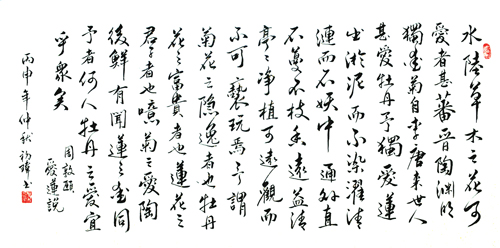 水陸草木之花可
愛者甚蕃晉陶淵明
獨愛菊自李唐来世人
甚愛牡丹予獨愛蓮
出淤泥而不染濯清
漣而不妖中通外直
不蔓不枝香遠益清
亭亭净植可遠觀而
不可褻玩焉予謂
菊花之隐逸者也牡丹
花之富貴者也蓮花之
君子者也噫菊之愛陶
後鮮有聞蓮之愛同
予者何人牡丹之愛宜
乎衆矣
周敦頤
愛蓮說
丙申年仲秋書